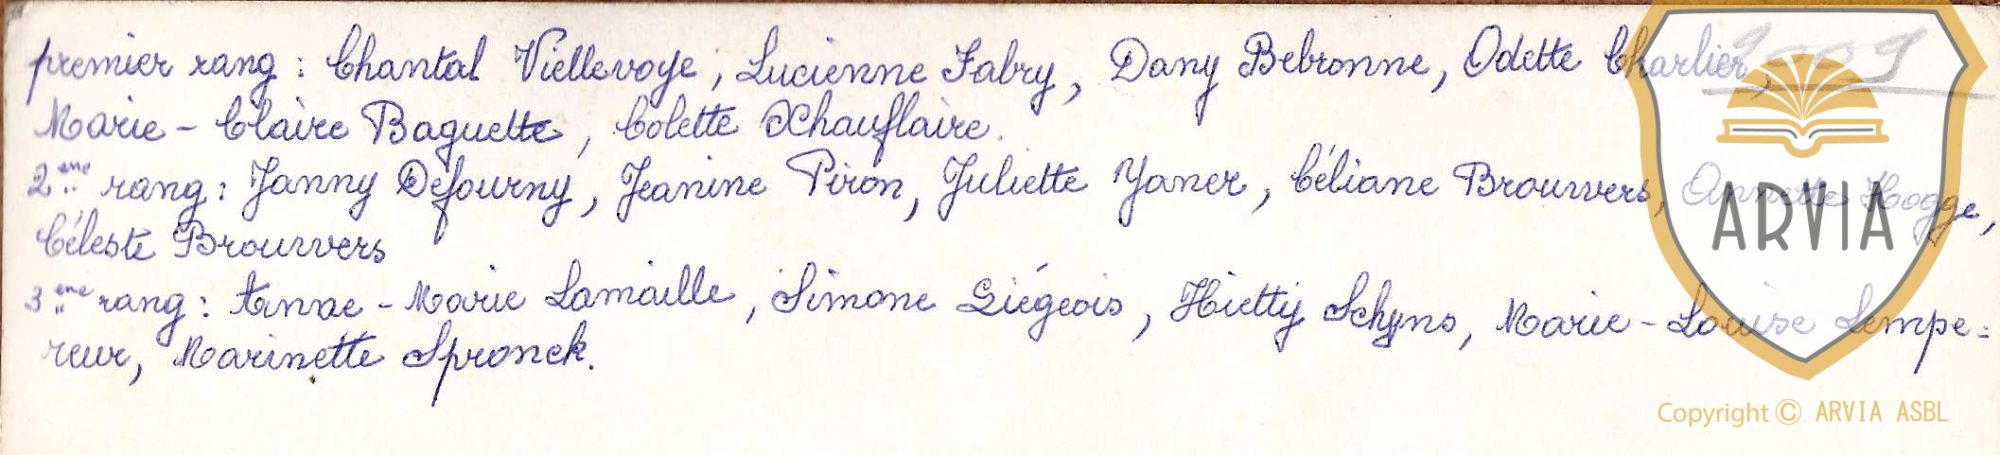 premier rang : Chantal Viellevoye, Lucienne Fabry, Dany Bebronne, Odette Charlier,
Marie-Claire Baguette, Colette Xhauflaire.
2ème rang : Janny Defourny, Jeanine Piron, Juliette Yaner, Céliane Brouwers, Annette Hogge,
Céleste Brouwers
3ème rang : Anne-Marie Lamaille, Simone Liégeois, Hietty Schyns, Marie-Louise Lempe=
reur, Marinette Spronck.
ARVIA
Copyright © ARVIA ASBL